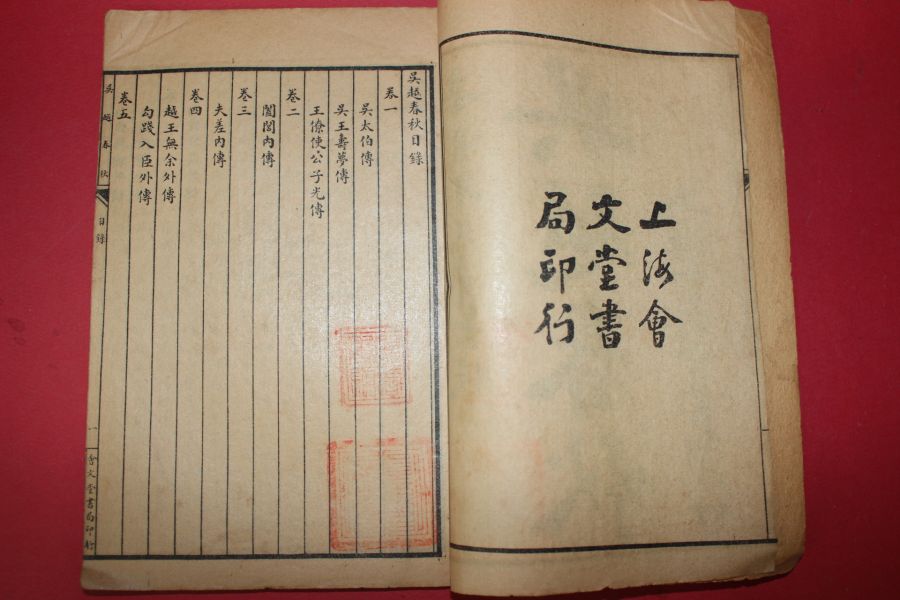 上海會
文堂書
局印行
吳越春秋目錄
卷一
吳太伯傳
吳王壽夢傳
王僚使公子光傳
卷二
闔閭內傳
卷三
夫差內傳
卷四
越王無余外傳
勾踐入臣外傳
卷五
吳越春秋
目錄
一
會文堂書局印行